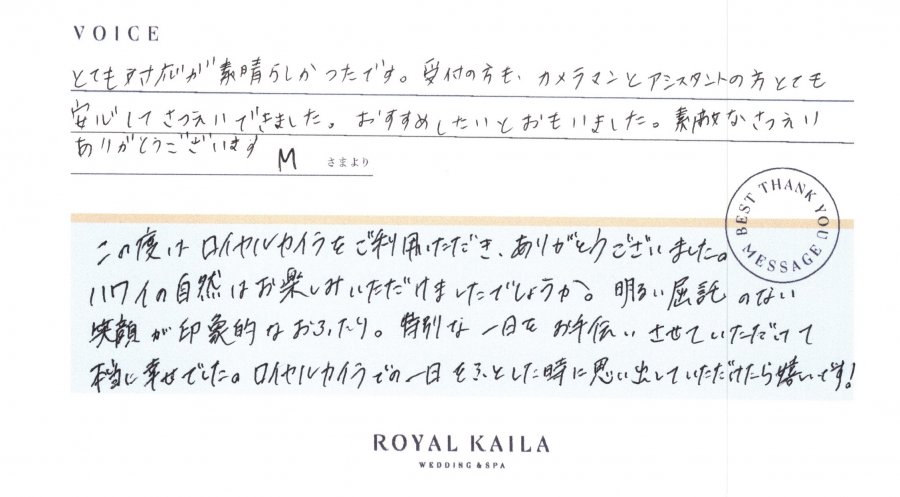 VOICE
とても対応が素晴らしかったです。受付の方も、カメラマンとアシスタントの方とても
安心してさつえいできました。おすすめしたいとおもいました。素敵なさつえい
ありがとうございます
M さまより
BEST THANK YOU MESSAGE
この度はロイヤルカイラをご利用いただき、ありがとうございました。
ハワイの自然はお楽しみいただけましたでしょうか。明るい屈託のない
笑顔が印象的なおふたり。特別な一日をお手伝いさせていただけて
本当に幸せでした。ロイヤルカイラでの一日をふとした時に思い出していただけたら嬉しいです!
ROYAL KAILA
WEDDING & SPA